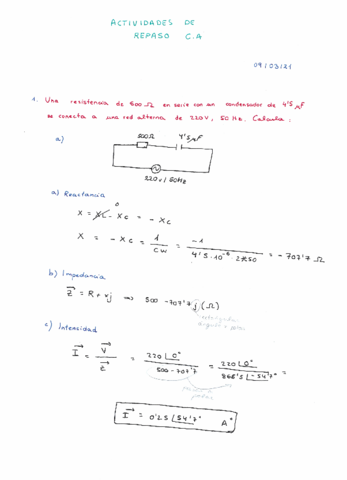 ACTIVIDADES DE
REPASO C.A
09/03/21
1. Una resistencia de 500 Ω en serie con un condensador de 4'5 μF
se conecta a una red alterna de 220V, 50 Hz. Calcula:
a)
500Ω 4'5 μF
220v/50Hz
a) Reactancia
X = XL - Xc = - Xc
0
X = - Xc = 1 / CW = -1 / 4'5 · 10⁻⁶ · 2π50 = - 707'7 Ω
b) Impedancia
Z = R + xj ⇒ 500 - 707'7 j (Ω)
c) Intensidad
I = V / Z = 220 ∠0° / 500 - 707'7 = 220 ∠0° / 866'5 ∠-54'7° =
I = 0'25 ∠54'7° A